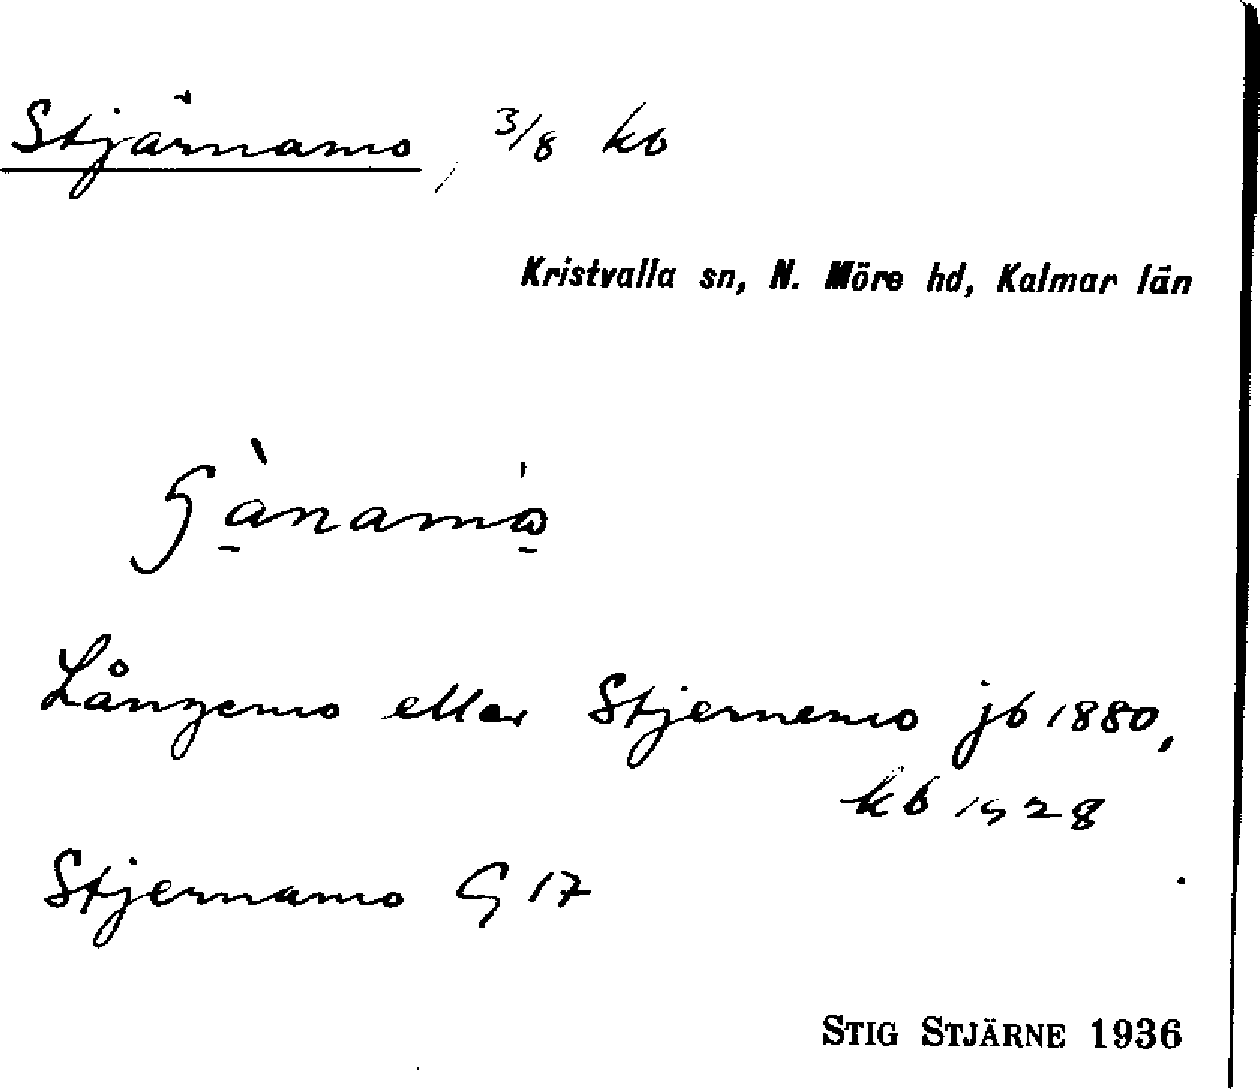 Stjärnamo, 3/8 kb
Kristvalla sn, N. Möre hd, Kalmar län
Långemo eller Stjernemo jb 1880,
kb 1928
Stjernamo G 17
STIG STJÄRNE 1936